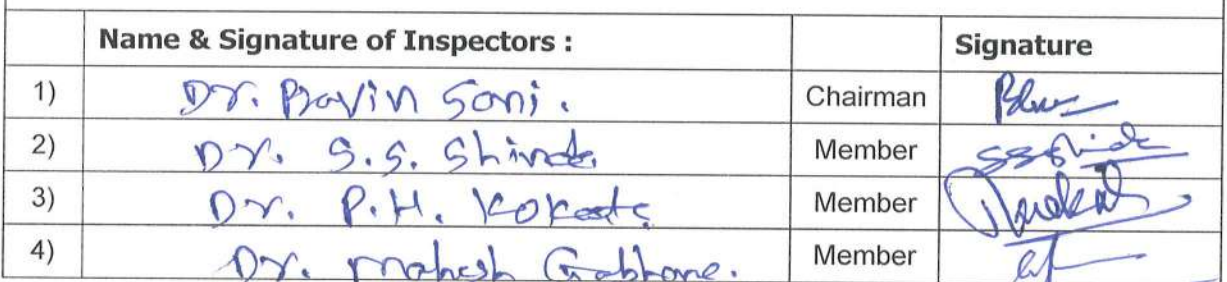 Name & Signature of Inspectors : Signature
1) Dr. Pravin Soni. Chairman
2) Dr. S.S. Shinde. Member SSShinde
3) Dr. P.H. Kokate Member
4) Dr. Mahesh Gabhane. Member